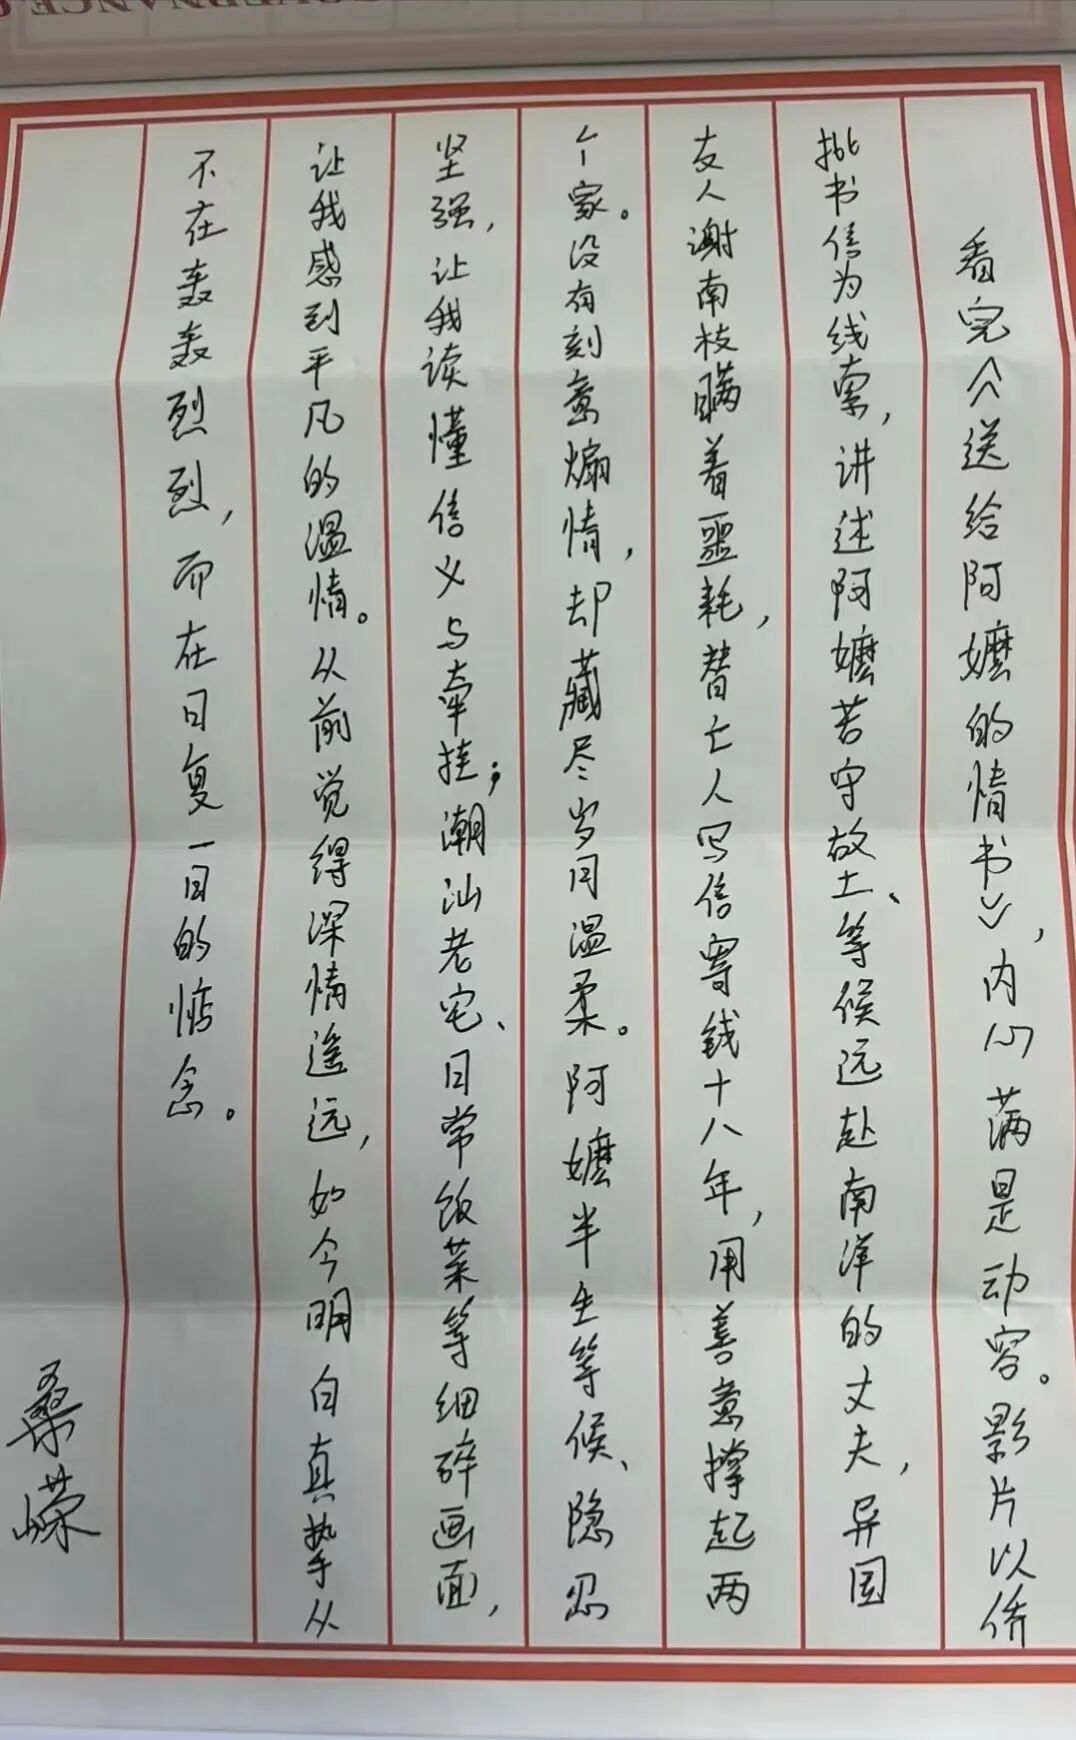 GOVERNANCE
看完《送给阿嬷的情书》，内心满是动容。影片以侨
批书信为线索，讲述阿嬷苦守故土、等候远赴南洋的丈夫，异国
友人谢南枝瞒着噩耗，替亡人写信寄钱十八年，用善意撑起两
个家。没有刻意煽情，却藏尽岁月温柔。阿嬷半生等候、隐忍
坚强，让我读懂信义与牵挂；潮汕老宅、日常饭菜等细碎画面，
让我感到平凡的温情。从前觉得深情遥远，如今明白真挚从
不在轰轰烈烈，而在日复一日的惦念。
桑嵘